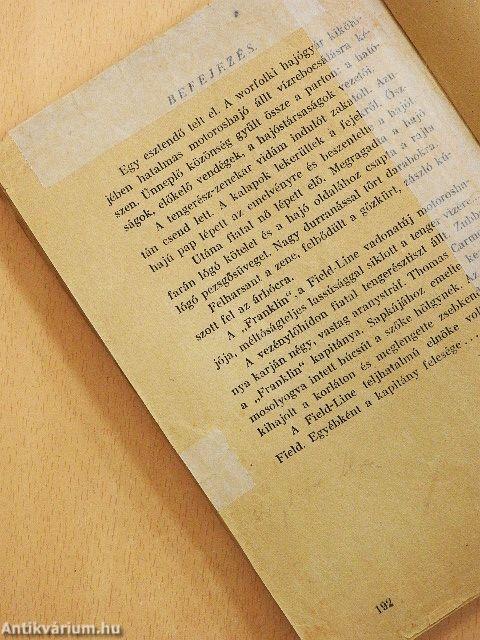 BEFEJEZÉS.
Egy esztendő telt el. A worfolki hajógyár kikötő-
jében hatalmas motoroshajó állt vízrebocsátásra ké-
szen. Ünneplő közönség gyűlt össze a parton: a ható-
ságok, előkelő vendégek, a hajóstársaságok vezetői.
A tengerész-zenekar vidám indulót zakatolt. Azu-
tán csend lett. A kalapok lekerültek a fejekről. Ősz
hajú pap lépett az emelvényre és beszentelte a hajót.
Utána fiatal nő lépett elő. Megragadta a hajó
farán lógó kötelet és a hajó oldalához csapta a rajta
lógó pezsgősüveget. Nagy durranással tört darabokra.
Felharsant a zene, felbődült a gőzkürt, zászló kú-
szott fel az árbócra.
A „Franklin", a Field-Line vadonatúj motorosha-
jója, méltóságteljes lassúsággal siklott a tenger vizére...
A vezénylőhídon fiatal tengerésztiszt állt. Zubbo-
nya karján négy, vastag aranystráf. Thomas Carmo
a „Franklin" kapitánya. Sapkájához emelte ke
mosolyogva intett búcsút a szőke hölgynek. A
kihajolt a korláton és meglengette zsebkend
A Field-Line feljhatalmú elnöke vol
Field. Egyébként a kapitány felesége...
192
Antikvárium.hu